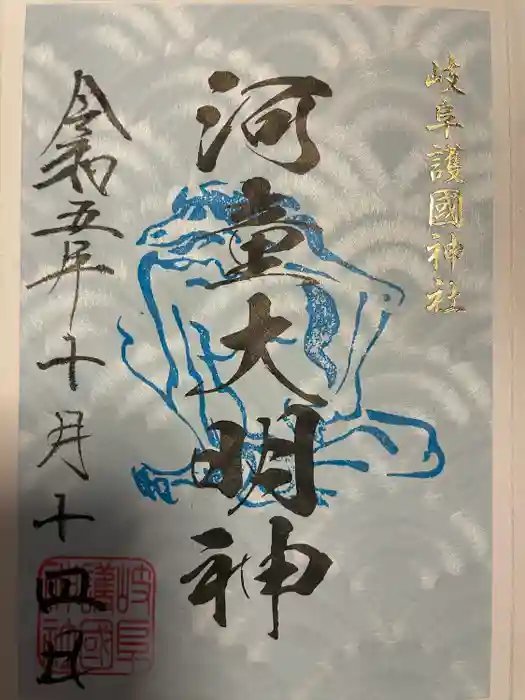 岐阜護國神社
河童大明神
令和五年十月十四日
岐阜護國神社